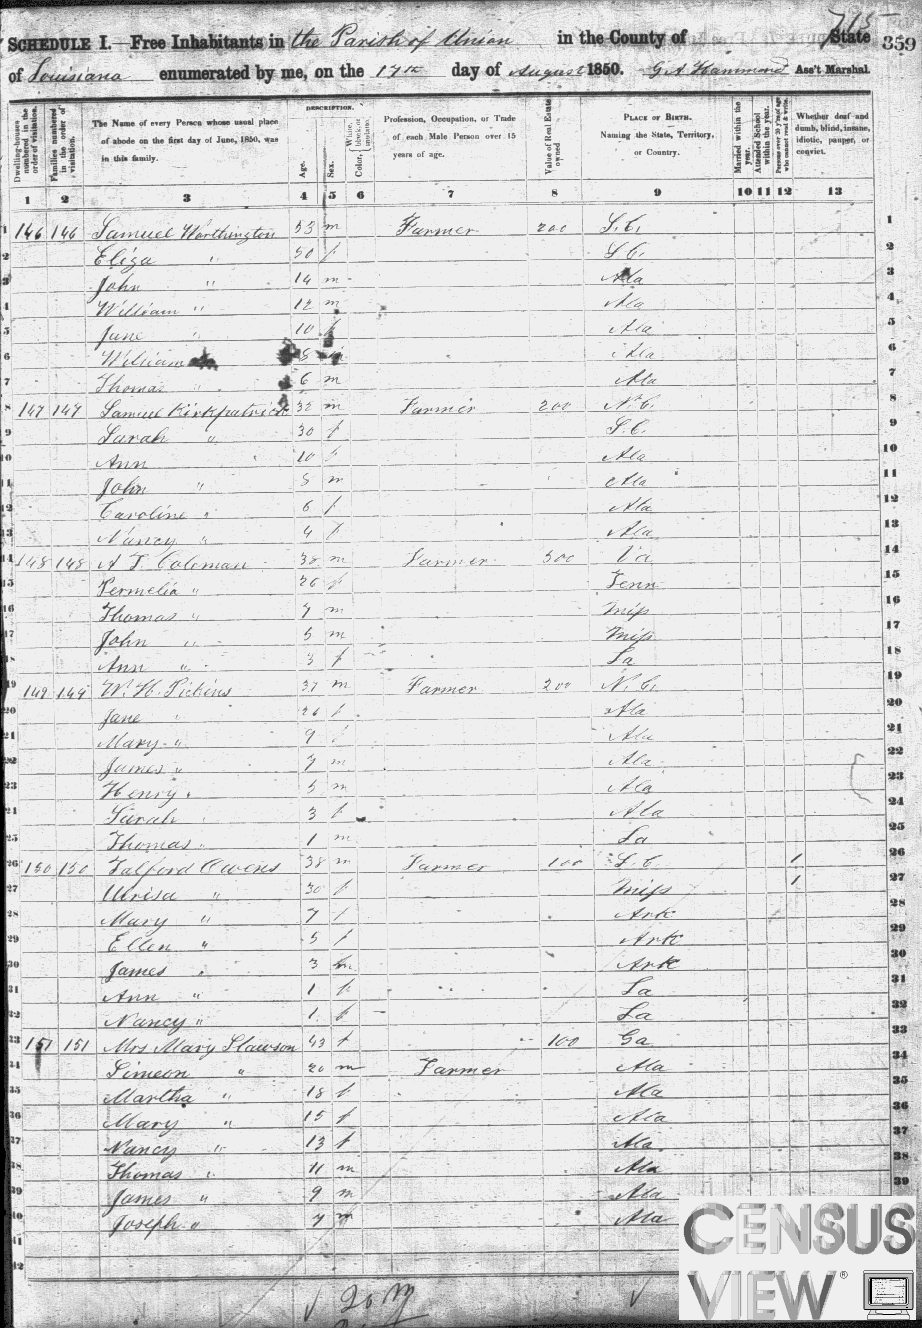 715
SCHEDULE I.—Free Inhabitants in the Parish of Union in the County of State 359
of Louisiana enumerated by me, on the 17th day of August 1850. G A Hammond Ass't Marshal.
Dwelling-houses numbered in the order of visitation.
Families numbered in the order of visitation.
The Name of every Person whose usual place of abode on the first day of June, 1850, was in this family.
DESCRIPTION.
Age.
Sex.
Color, White, black, or mulatto.
Profession, Occupation, or Trade of each Male Person over 15 years of age.
Value of Real Estate owned
PLACE OF BIRTH. Naming the State, Territory, or Country.
Married within the year.
Attended School within the year.
Persons over 20 y'rs of age who cannot read & write.
Whether deaf and dumb, blind, insane, idiotic, pauper, or convict.
1 2 3 4 5 6 7 8 9 10 11 12 13
1 146 146 Samuel Worthington 53 m Farmer 200 S.C. 1
2 Eliza " 50 f S.C. 2
3 John " 14 m Ala 3
4 William " 12 m Ala 4
5 Jane " 10 f Ala 5
6 William 8 Ala 6
7 Thomas " 6 m Ala 7
8 147 147 Samuel Kirkpatrick 32 m Farmer 200 N.C. 8
9 Sarah " 30 f S.C. 9
10 Ann 10 f Ala 10
11 John " 8 m Ala 11
12 Caroline " 6 f Ala 12
13 Nancy " 4 f Ala 13
14 148 148 A T. Coleman 38 m Farmer 500 Va 14
15 Permelia " 26 f Tenn 15
16 Thomas " 7 m Miss 16
17 John " 5 m Miss 17
18 Ann " 3 f La 18
19 149 149 W. H. Pickins 37 m Farmer 200 N.C. 19
20 Jane " 26 f Ala 20
21 Mary " 9 f Ala 21
22 James " 7 m Ala 22
23 Henry " 5 m Ala 23
24 Sarah " 3 f Ala 24
25 Thomas " 1 m La 25
26 150 150 Talford Owens 38 m Farmer 100 S.C. 1 26
27 Urisa " 30 f Miss 1 27
28 Mary " 7 f Ark 28
29 Ellen " 5 f Ark 29
30 James " 3 m Ark 30
31 Ann " 1 f La 31
32 Nancy " 1 f La 32
33 151 151 Mrs Mary Slawson 43 f 100 Ga 33
34 Simeon " 20 m Farmer Ala 34
35 Martha " 18 f Ala 35
36 Mary " 15 f Ala 36
37 Nancy " 13 f Ala 37
38 Thomas " 11 m Ala 38
39 James " 9 m Ala 39
40 Joseph " 7 m Ala
41
42
20 m
CENSUS
VIEW®